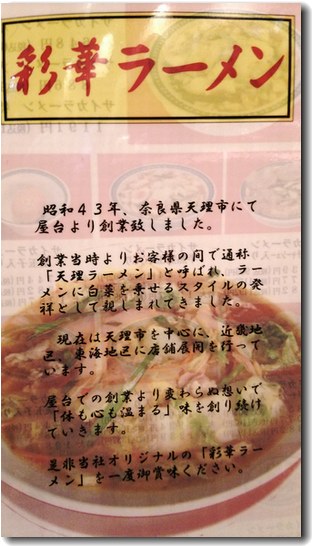 彩華ラーメン
昭和４３年、奈良県天理市にて
屋台より創業致しました。
創業当時よりお客様の間で通称
「天理ラーメン」と呼ばれ、ラー
メンに白菜を乗せるスタイルの発
祥として親しまれてきました。
現在は天理市を中心に、近畿地
区、東海地区に店舗展開を行って
います。
屋台での創業より変わらぬ想いで
「体も心も温まる」味を創り続け
ていきます。
是非当社オリジナルの「彩華ラー
メン」を一度御賞味ください。